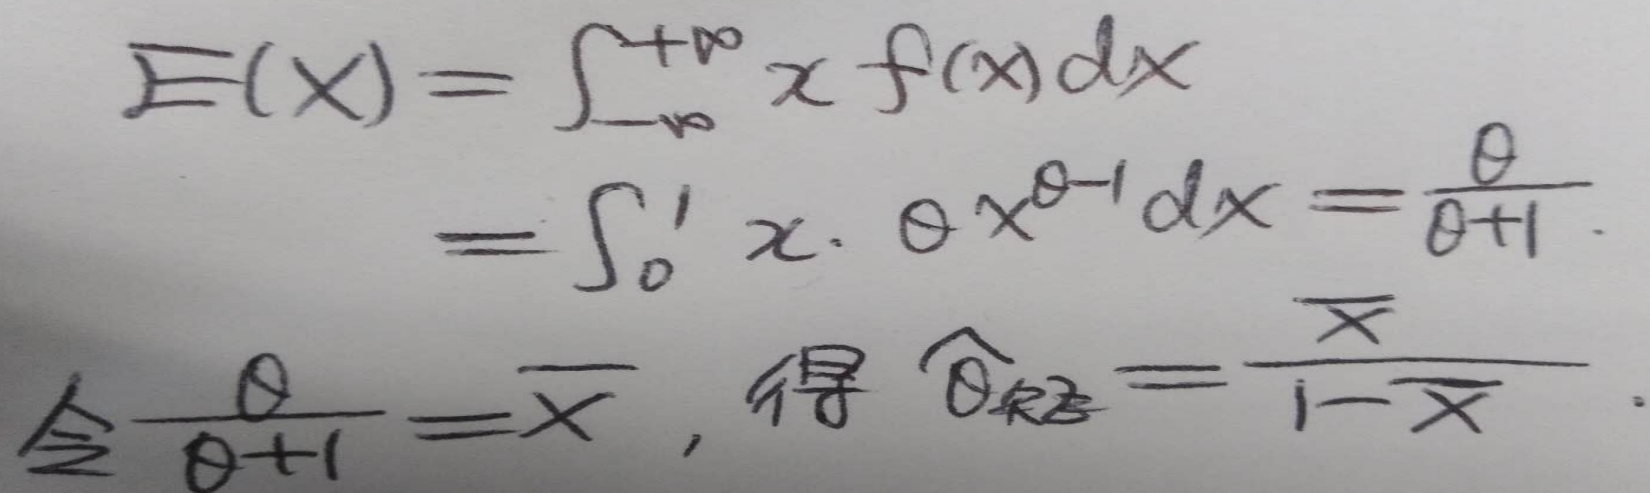 E(X) = ∫_{-∞}^{+∞} x f(x) dx
= ∫_0^1 x · θ x^{θ-1} dx = θ/(θ+1) .
令 θ/(θ+1) = X̄ , 得 θ̂_矩 = X̄/(1-X̄) .